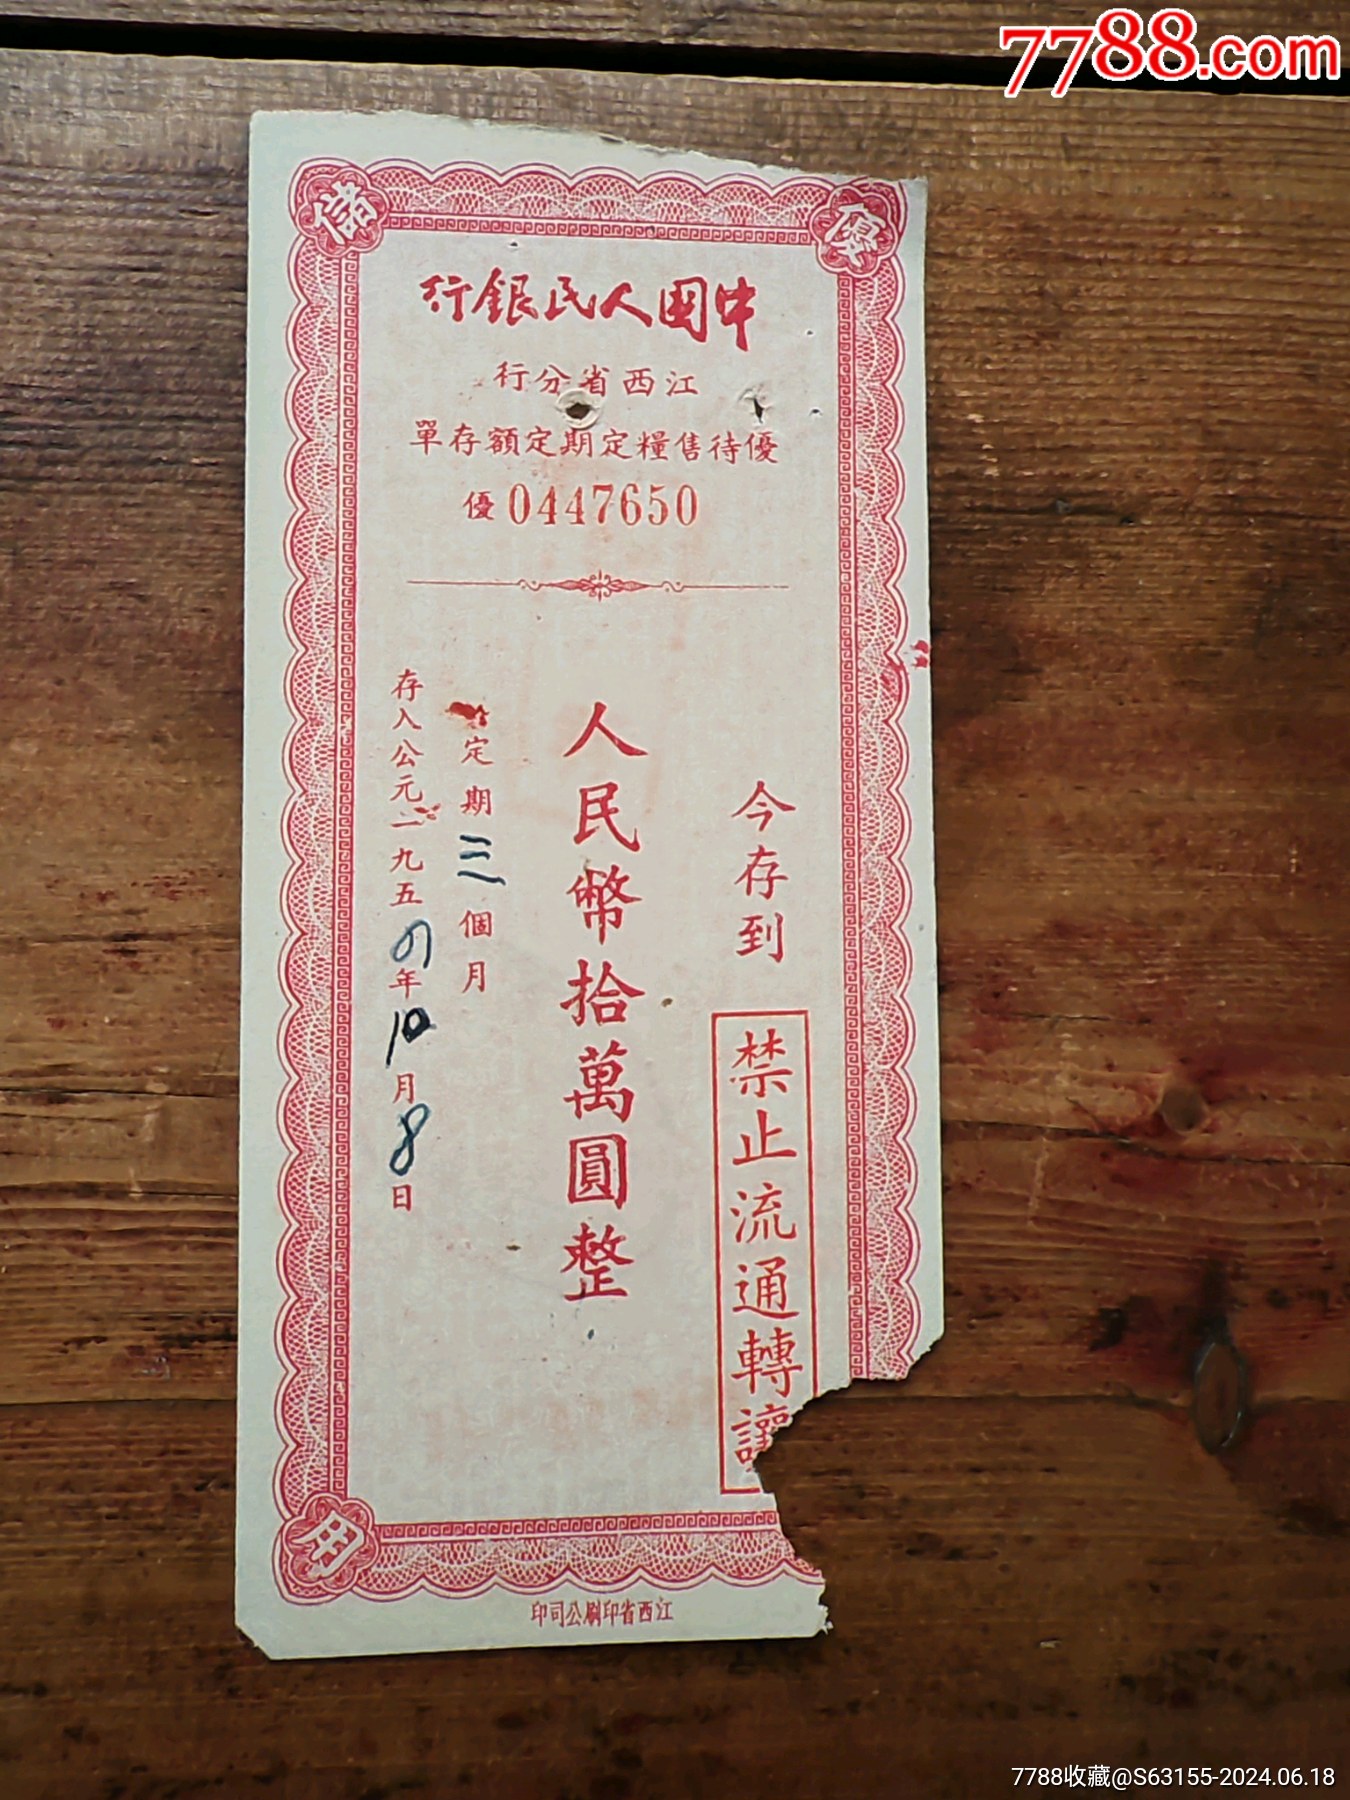 7788.com
優
儲
中國人民銀行
江西省分行
優待售糧定期定額存單
優 0447650
今存到
禁止流通轉讓
人民幣拾萬圓整
定期三個月
存入公元一九五四年10月8日
用
江西省印刷公司印
7788收藏@S63155-2024.06.18